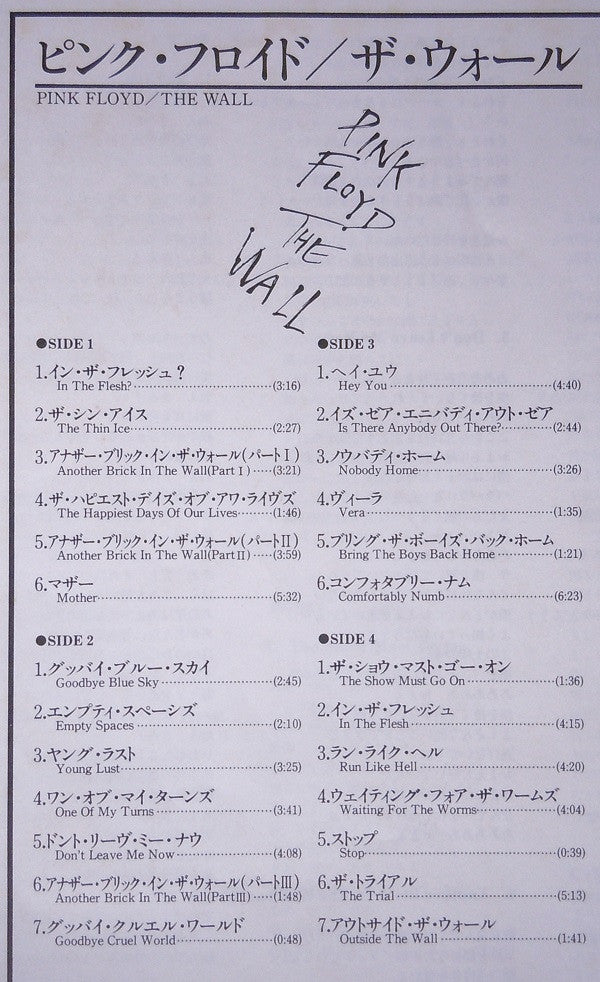 ピンク・フロイド／ザ・ウォール
PINK FLOYD／THE WALL
PINK
FLOYD
THE
WALL
●SIDE 1
1.イン・ザ・フレッシュ？
In The Flesh?……(3:16)
2.ザ・シン・アイス
The Thin Ice……(2:27)
3.アナザー・ブリック・イン・ザ・ウォール(パートⅠ)
Another Brick In The Wall(PartⅠ)……(3:21)
4.ザ・ハピエスト・デイズ・オブ・アワ・ライヴズ
The Happiest Days Of Our Lives……(1:46)
5.アナザー・ブリック・イン・ザ・ウォール(パートⅡ)
Another Brick In The Wall(PartⅡ)……(3:59)
6.マザー
Mother……(5:32)
●SIDE 2
1.グッバイ・ブルー・スカイ
Goodbye Blue Sky……(2:45)
2.エンプティ・スペーシズ
Empty Spaces……(2:10)
3.ヤング・ラスト
Young Lust……(3:25)
4.ワン・オブ・マイ・ターンズ
One Of My Turns……(3:41)
5.ドント・リーヴ・ミー・ナウ
Don't Leave Me Now……(4:08)
6.アナザー・ブリック・イン・ザ・ウォール(パートⅢ)
Another Brick In The Wall(PartⅢ)……(1:48)
7.グッバイ・クルエル・ワールド
Goodbye Cruel World……(0:48)
●SIDE 3
1.ヘイ・ユウ
Hey You……(4:40)
2.イズ・ゼア・エニバディ・アウト・ゼア
Is There Anybody Out There?……(2:44)
3.ノウバディ・ホーム
Nobody Home……(3:26)
4.ヴィーラ
Vera……(1:35)
5.ブリング・ザ・ボーイズ・バック・ホーム
Bring The Boys Back Home……(1:21)
6.コンフォタブリー・ナム
Comfortably Numb……(6:23)
●SIDE 4
1.ザ・ショウ・マスト・ゴー・オン
The Show Must Go On……(1:36)
2.イン・ザ・フレッシュ
In The Flesh……(4:15)
3.ラン・ライク・ヘル
Run Like Hell……(4:20)
4.ウェイティング・フォア・ザ・ワームズ
Waiting For The Worms……(4:04)
5.ストップ
Stop……(0:39)
6.ザ・トライアル
The Trial……(5:13)
7.アウトサイド・ザ・ウォール
Outside The Wall……(1:41)